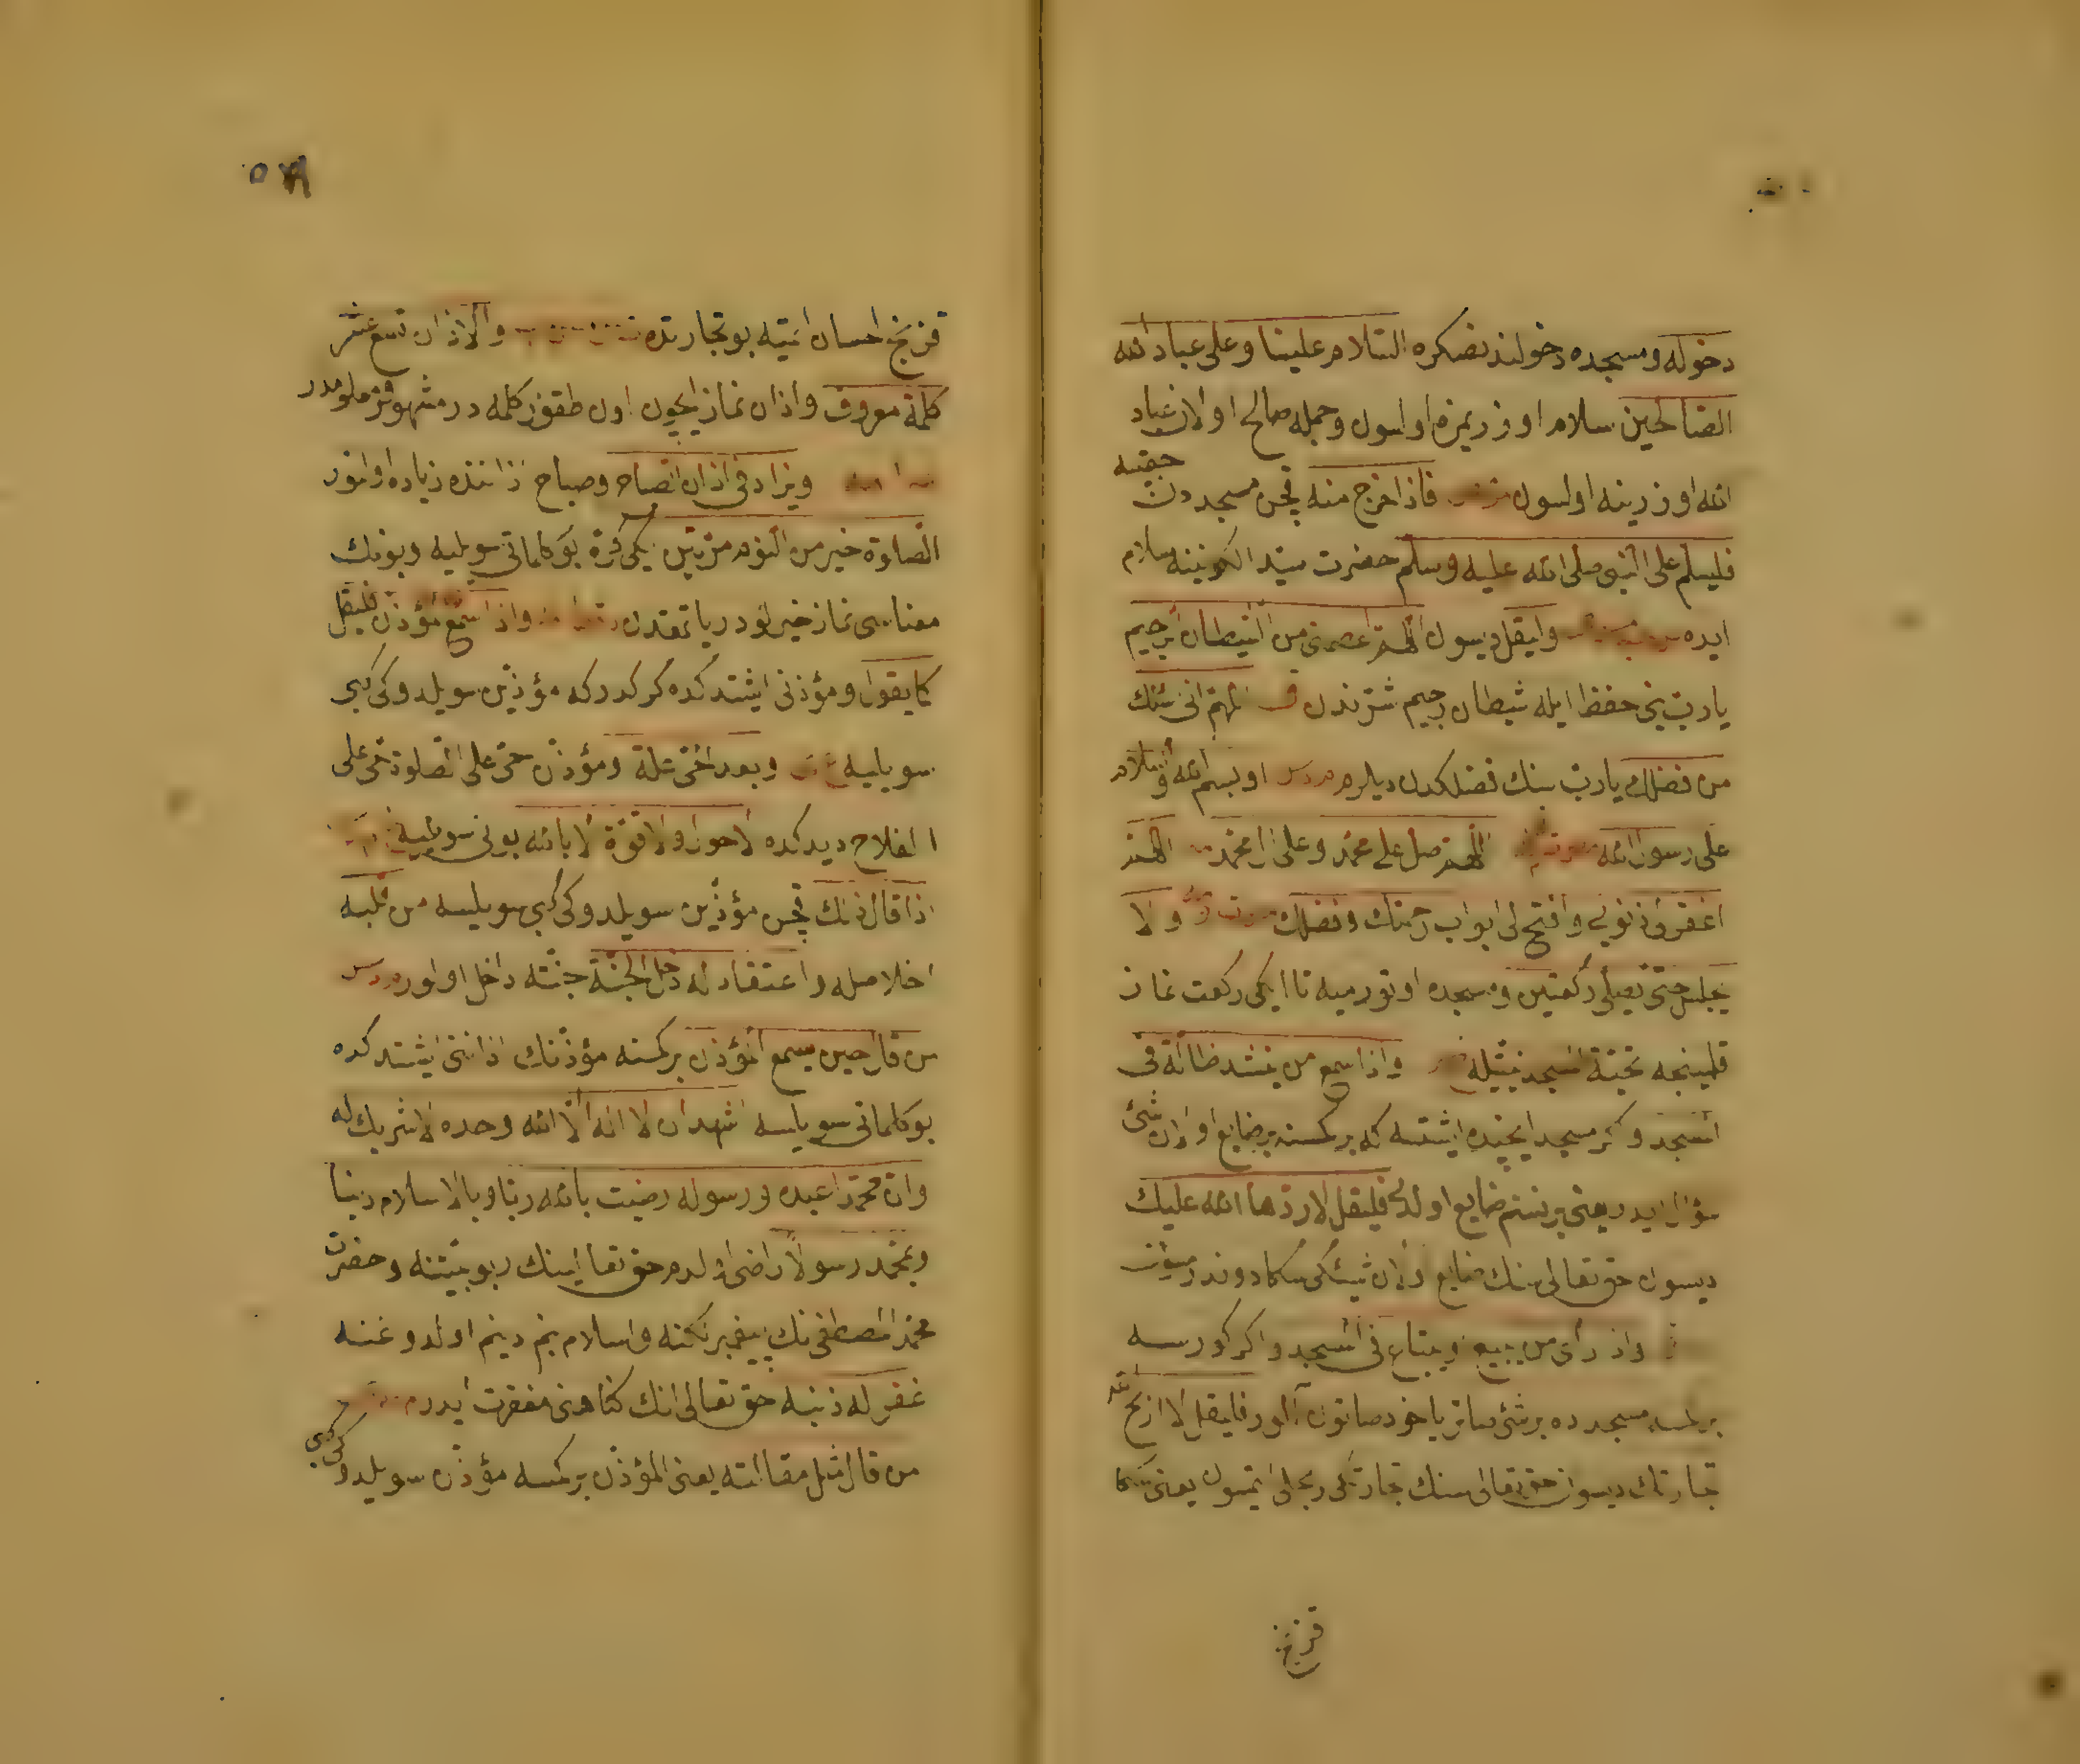 دخوله و مسجده دخولندنصكره السلام علينا وعلى عباد الله
الصالحين سلام اوزريمزه اولسون وجمله صالح اولان عباد
الله اوزرينه اولسون فاذا خرج منه قچن مسجددن چقيه
فليسلم على النبى صلى الله عليه وسلم حضرت سيد الكونينه سلام
ايده وليقل ديسون اللهم اعصمنى من الشيطان الرجيم
يارب بنى حفظ ايله شيطان رجيم شرندن اللهم انى اسئلك
من فضلك يارب سنك فضلكدن ديلرم او بسم الله والسلام
على رسول الله اللهم صل على محمد وعلى ال محمد اللهم
اغفر لى ذنوبى وافتح لى ابواب رحمتك وفضلك ولا
يجلس حتى يصلى ركعتين و مسجده اوتورميه تا ايكى ركعت نماز
قلمينجه تحية المسجد نيتيله واذا سمع من ينشد ضالة فى
المسجد و اكر مسجد ايچنده ايشتسه كه بركمسنه بر ضايع اولان شئ
سؤال ايدر يعنى بر نسنم ضايع اولدى فليقل لا ردها الله عليك
ديسون حق تعالى سنك ضايع اولان شيئكى سكا دوندرمسون
واذا رأى من يبيع ويبتاع فى المسجد و اكر كورسه
بركمسه مسجدده بر شئ صاتر ياخود صاتون آلور فليقل لا اربح الله
تجارتك ديسون حق تعالى سنك تجارتكى رجلى ايتمسون يعنى سكا
قزنج
قزنج احسان ائتيه بو تجارتده والاذان تسع عشر
كلمة معروف واذان نماز ايچون اون طقوز كلمه در مشهور معلومدر
ويزاد فى اذان الصباح وصباح اذاننده زياده اولنور
الصلوة خير من النوم مرتين ايكى كره بو كلماتى سويليه وبونك
معناسى نماز خيرلودر ياتمقدن واذا سمع المؤذن فليقل
كما يقول و مؤذنى ايشتدكده كركدركه مؤذن سويلدوكى كبى
سويليه وبعد الحيعلة و مؤذن حى على الصلوة حى على
الفلاح ديدكده لا حول ولا قوة الا بالله بونى سويليه
اذا قال ذلك قچن مؤذن سويلدوكى كبى سويليسه من قلبه
اخلاصله واعتقادله دخل الجنة جنته داخل اولور
من قال حين يسمع المؤذن بركمسنه مؤذنك اذاننى ايشتدكده
بو كلماتى سويلسه اشهد ان لا اله الا الله وحده لا شريك له
وان محمدا عبده ورسوله رضيت بالله ربا وبالاسلام دينا
وبمحمد رسولا راضى اولدم حق تعالينك ربوبيتنه وحضرت
محمد المصطفى نك پيغمبرلكنه واسلام بنم دينم اولدوغنه
غفر له ذنبه حق تعالى انك كناهنى مغفرت ايدر
من قال مثل مقالته يعنى المؤذن بركمسه مؤذن سويلدوكى كبى